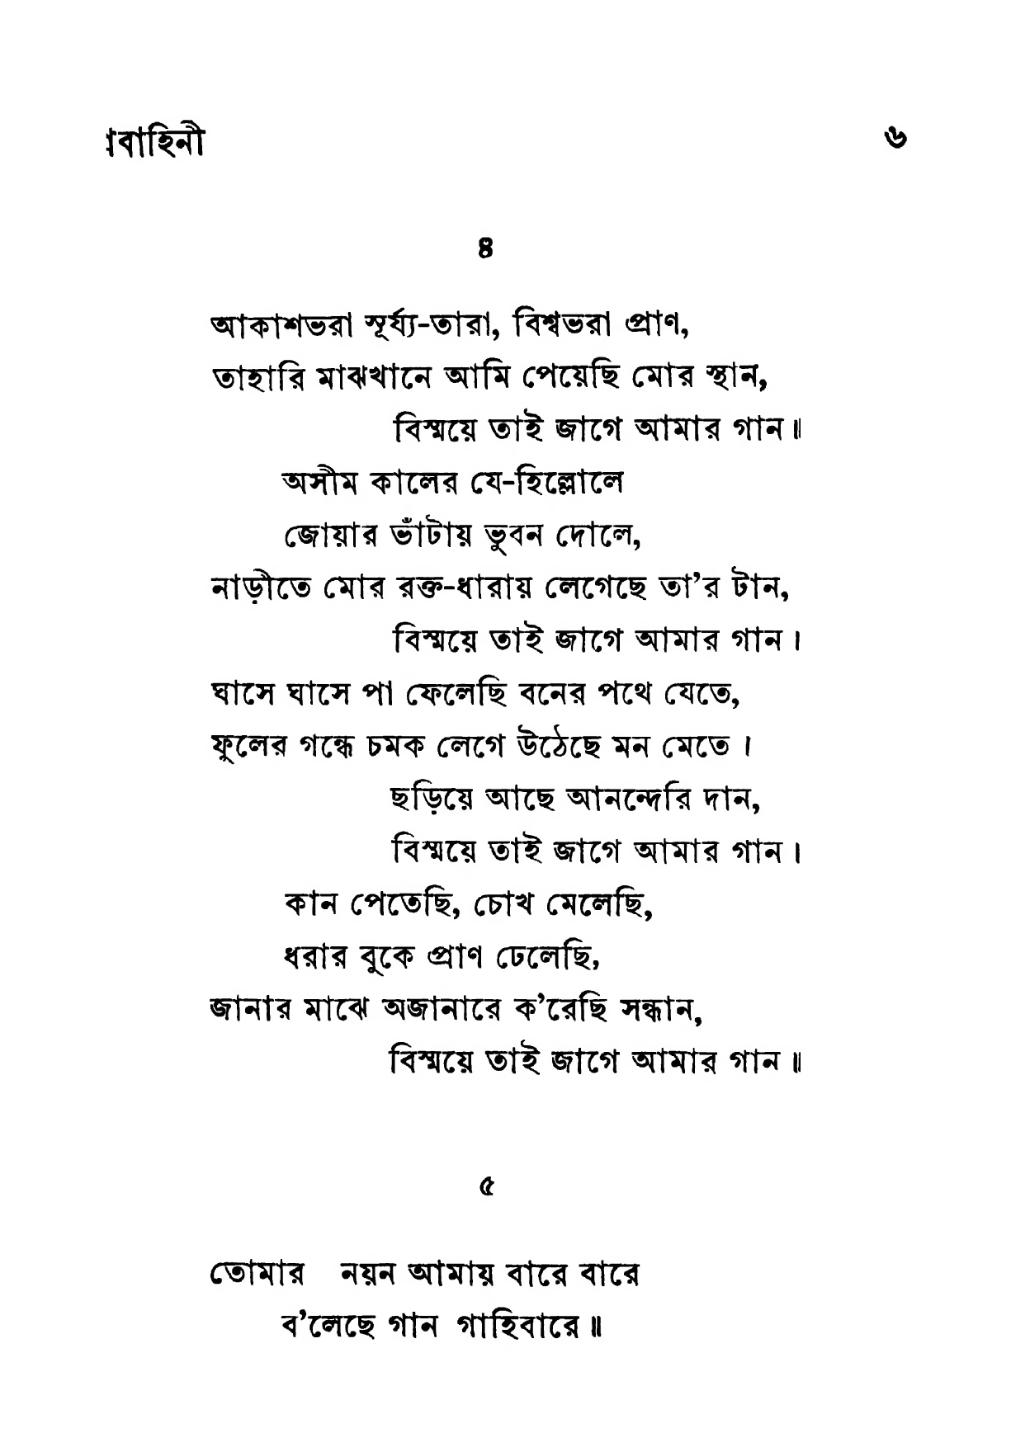 াবাহিনী ৬
৪
আকাশভরা সূর্য্য-তারা, বিশ্বভরা প্রাণ,
তাহারি মাঝখানে আমি পেয়েছি মোর স্থান,
বিস্ময়ে তাই জাগে আমার গান॥
অসীম কালের যে-হিল্লোলে
জোয়ার ভাঁটায় ভুবন দোলে,
নাড়ীতে মোর রক্ত-ধারায় লেগেছে তা’র টান,
বিস্ময়ে তাই জাগে আমার গান।
ঘাসে ঘাসে পা ফেলেছি বনের পথে যেতে,
ফুলের গন্ধে চমক লেগে উঠেছে মন মেতে।
ছড়িয়ে আছে আনন্দেরি দান,
বিস্ময়ে তাই জাগে আমার গান।
কান পেতেছি, চোখ মেলেছি,
ধরার বুকে প্রাণ ঢেলেছি,
জানার মাঝে অজানারে ক’রেছি সন্ধান,
বিস্ময়ে তাই জাগে আমার গান॥
৫
তোমার নয়ন আমায় বারে বারে
ব’লেছে গান গাহিবারে॥